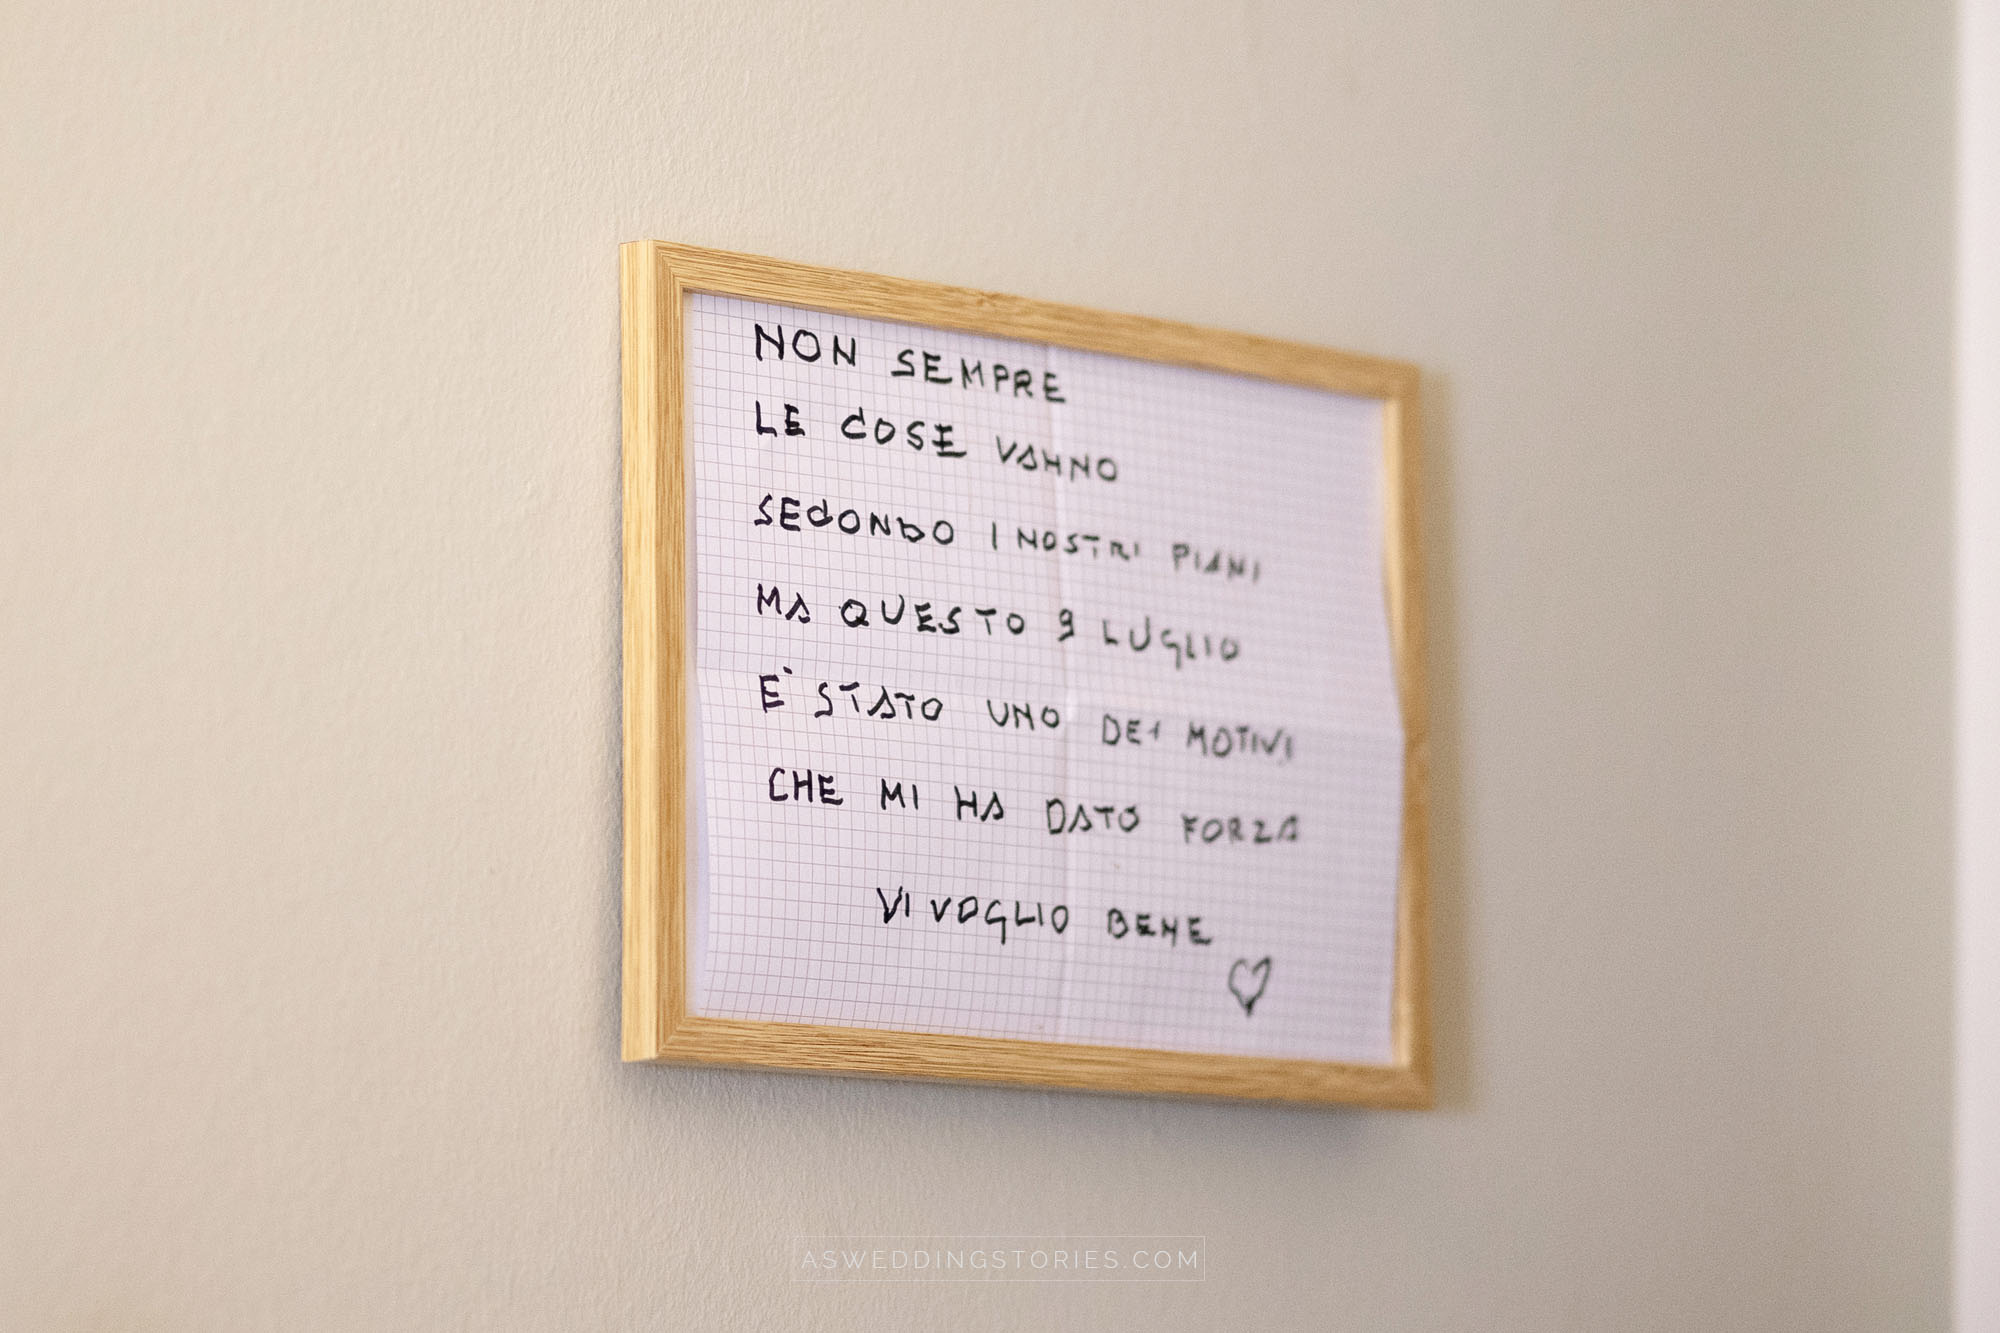 NON SEMPRE
LE COSE VANNO
SECONDO I NOSTRI PIANI
MA QUESTO 9 LUGLIO
E' STATO UNO DEI MOTIVI
CHE MI HA DATO FORZA
VI VOGLIO BENE
ASWEDDINGSTORIES.COM